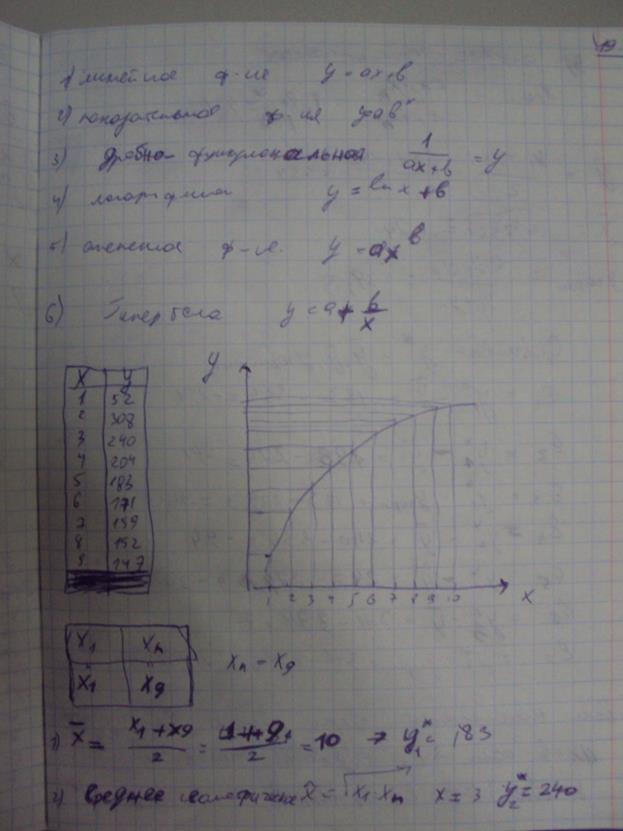 19
1) линейное ф-ия y = ax+b
2) показательное ф-ия y=ab^x
3) дробно-функциональная 1/(ax+b) = y
4) логарифмика y = ln x + b
5) степенное ф-ие. y = ax^b
6) Гипербола y = a + b/x
x y
1 52
2 308
3 240
4 204
5 183
6 171
7 159
8 152
9 147
y
1 2 3 4 5 6 7 8 9 10 x
x1 xn
x1 x9
xn - x9
1) x̄ = (x1 + x9)/2 = (1+9)/2 = 10 → y1* = 183
2) Среднее x̄ = √(x1·xn) x = 3 y2* = 240